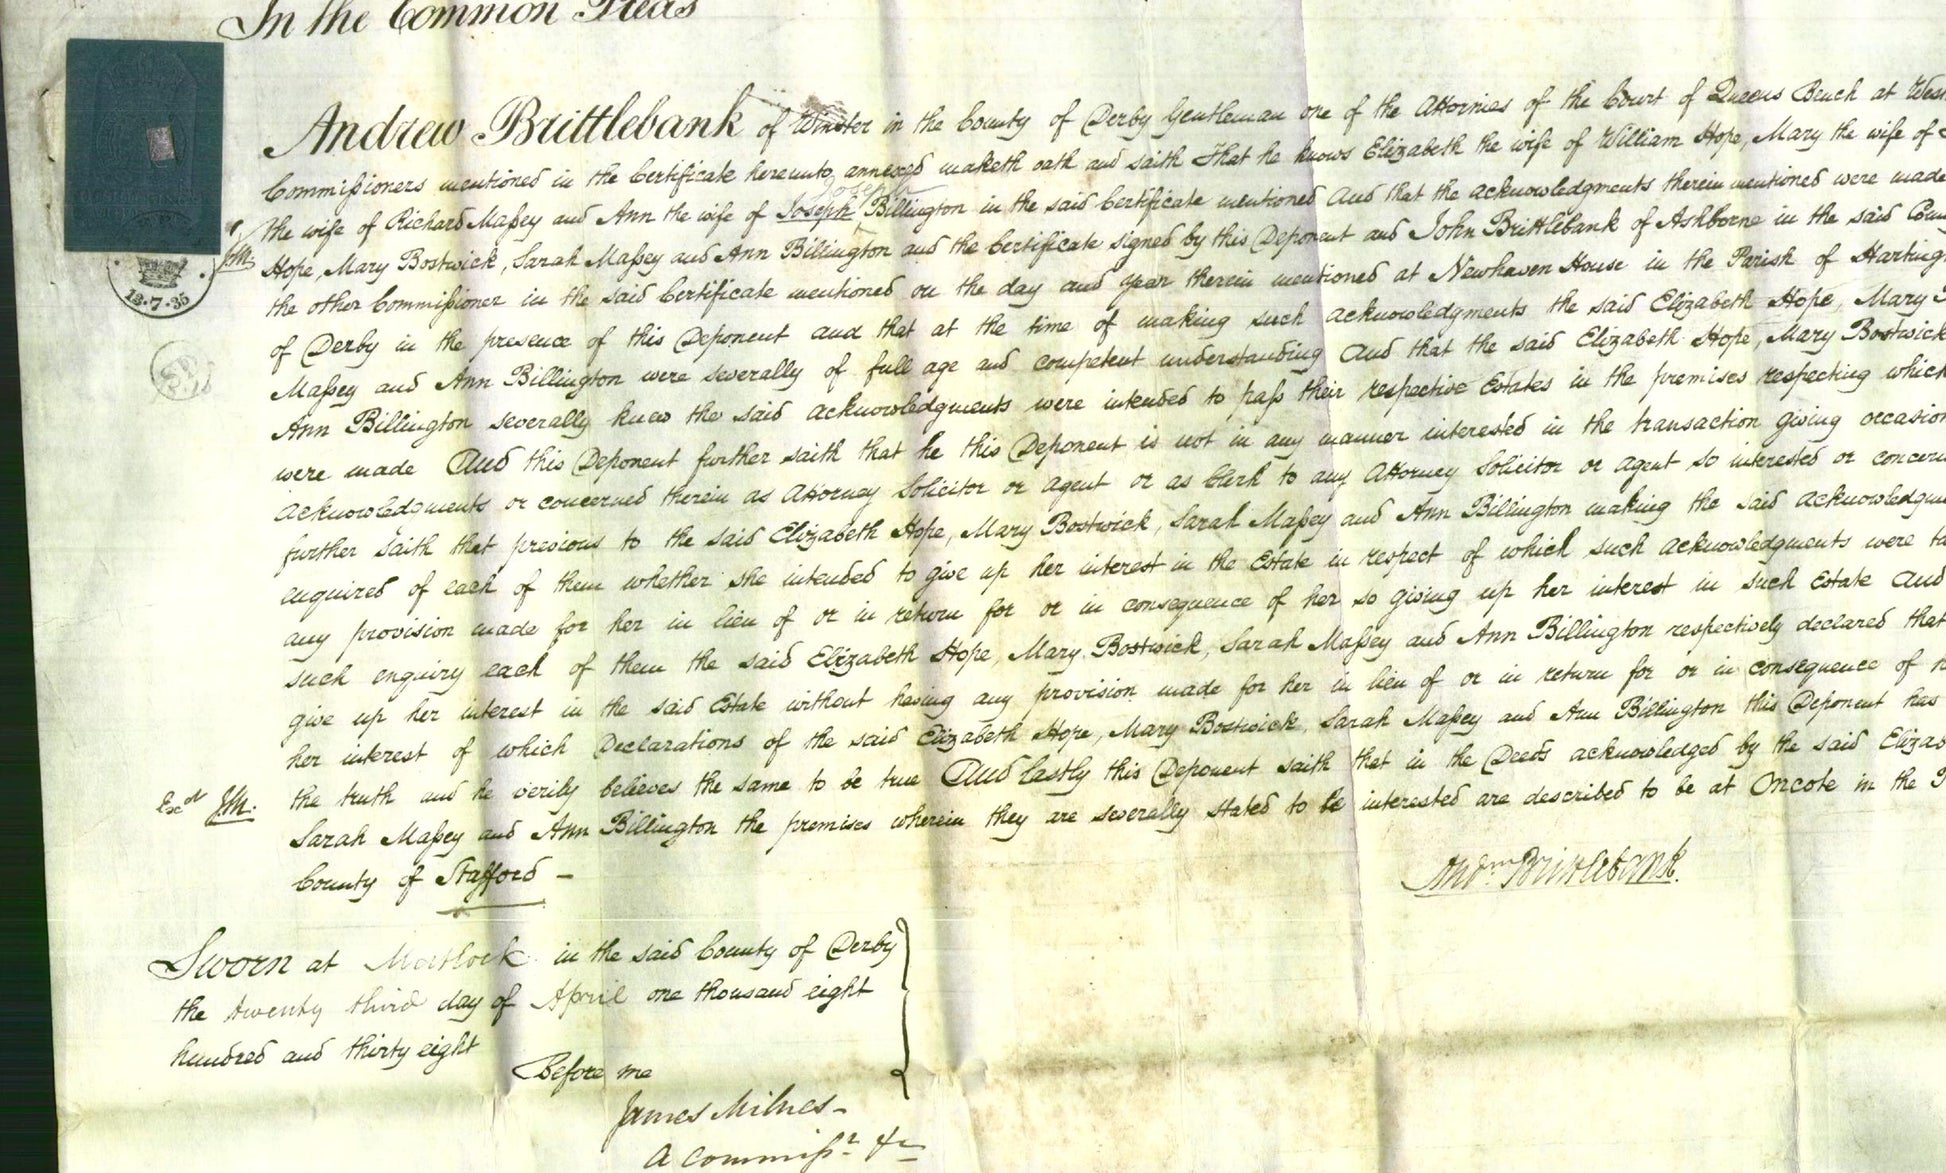 In the Common Pleas
Andrew Brittlebank of Winster in the County of Derby Gentleman one of the Attornies of the Court of Queens Bench at
Commissioners mentioned in the Certificate hereunto annexed maketh oath and saith That he knows Elizabeth the wife of William Hope, Mary the wife of
Joseph
the wife of Richard Massey and Ann the wife of Joseph Billington in the said Certificate mentioned And that the acknowledgments therein mentioned were made
J.M.
Hope, Mary Bostwick, Sarah Massey and Ann Billington and the Certificate signed by this Deponent and John Brittlebank of Ashborne in the said
the other Commissioner in the said Certificate mentioned on the day and year therein mentioned at Newhaven House in the Parish of
13.7.35
of Derby in the presence of this Deponent and that at the time of making such acknowledgments the said Elizabeth Hope, Mary
Massey and Ann Billington were severally of full age and competent understanding And that the said Elizabeth Hope, Mary Bostwick
Ann Billington severally knew the said acknowledgments were intended to pass their respective Estates in the premises respecting which
were made And this Deponent further saith that he this Deponent is not in any manner interested in the transaction giving occasion
acknowledgments or concerned therein as Attorney Solicitor or agent or as Clerk to any Attorney Solicitor or agent so interested or
further saith that previous to the said Elizabeth Hope, Mary Bostwick, Sarah Massey and Ann Billington making the said
enquired of each of them whether she intended to give up her interest in the Estate in respect of which such acknowledgments were
any provision made for her in lieu of or in return for or in consequence of her so giving up her interest in such Estate And
such enquiry each of them the said Elizabeth Hope, Mary Bostwick, Sarah Massey and Ann Billington respectively declared that
give up her interest in the said Estate without having any provision made for her in lieu of or in return for or in consequence of
her interest of which Declarations of the said Elizabeth Hope, Mary Bostwick, Sarah Massey and Ann Billington this Deponent has
Exd J.M. the truth and he verily believes the same to be true And lastly this Deponent saith that in the Deeds acknowledged by the said
Sarah Massey and Ann Billington the premises wherein they are severally stated to be interested are described to be at Oncote in the
County of Stafford —
Andw Brittlebank.
Sworn at Matlock in the said County of Derby
the twenty third day of April one thousand eight
hundred and thirty eight
Before me
James Milnes –
A Commissr &c